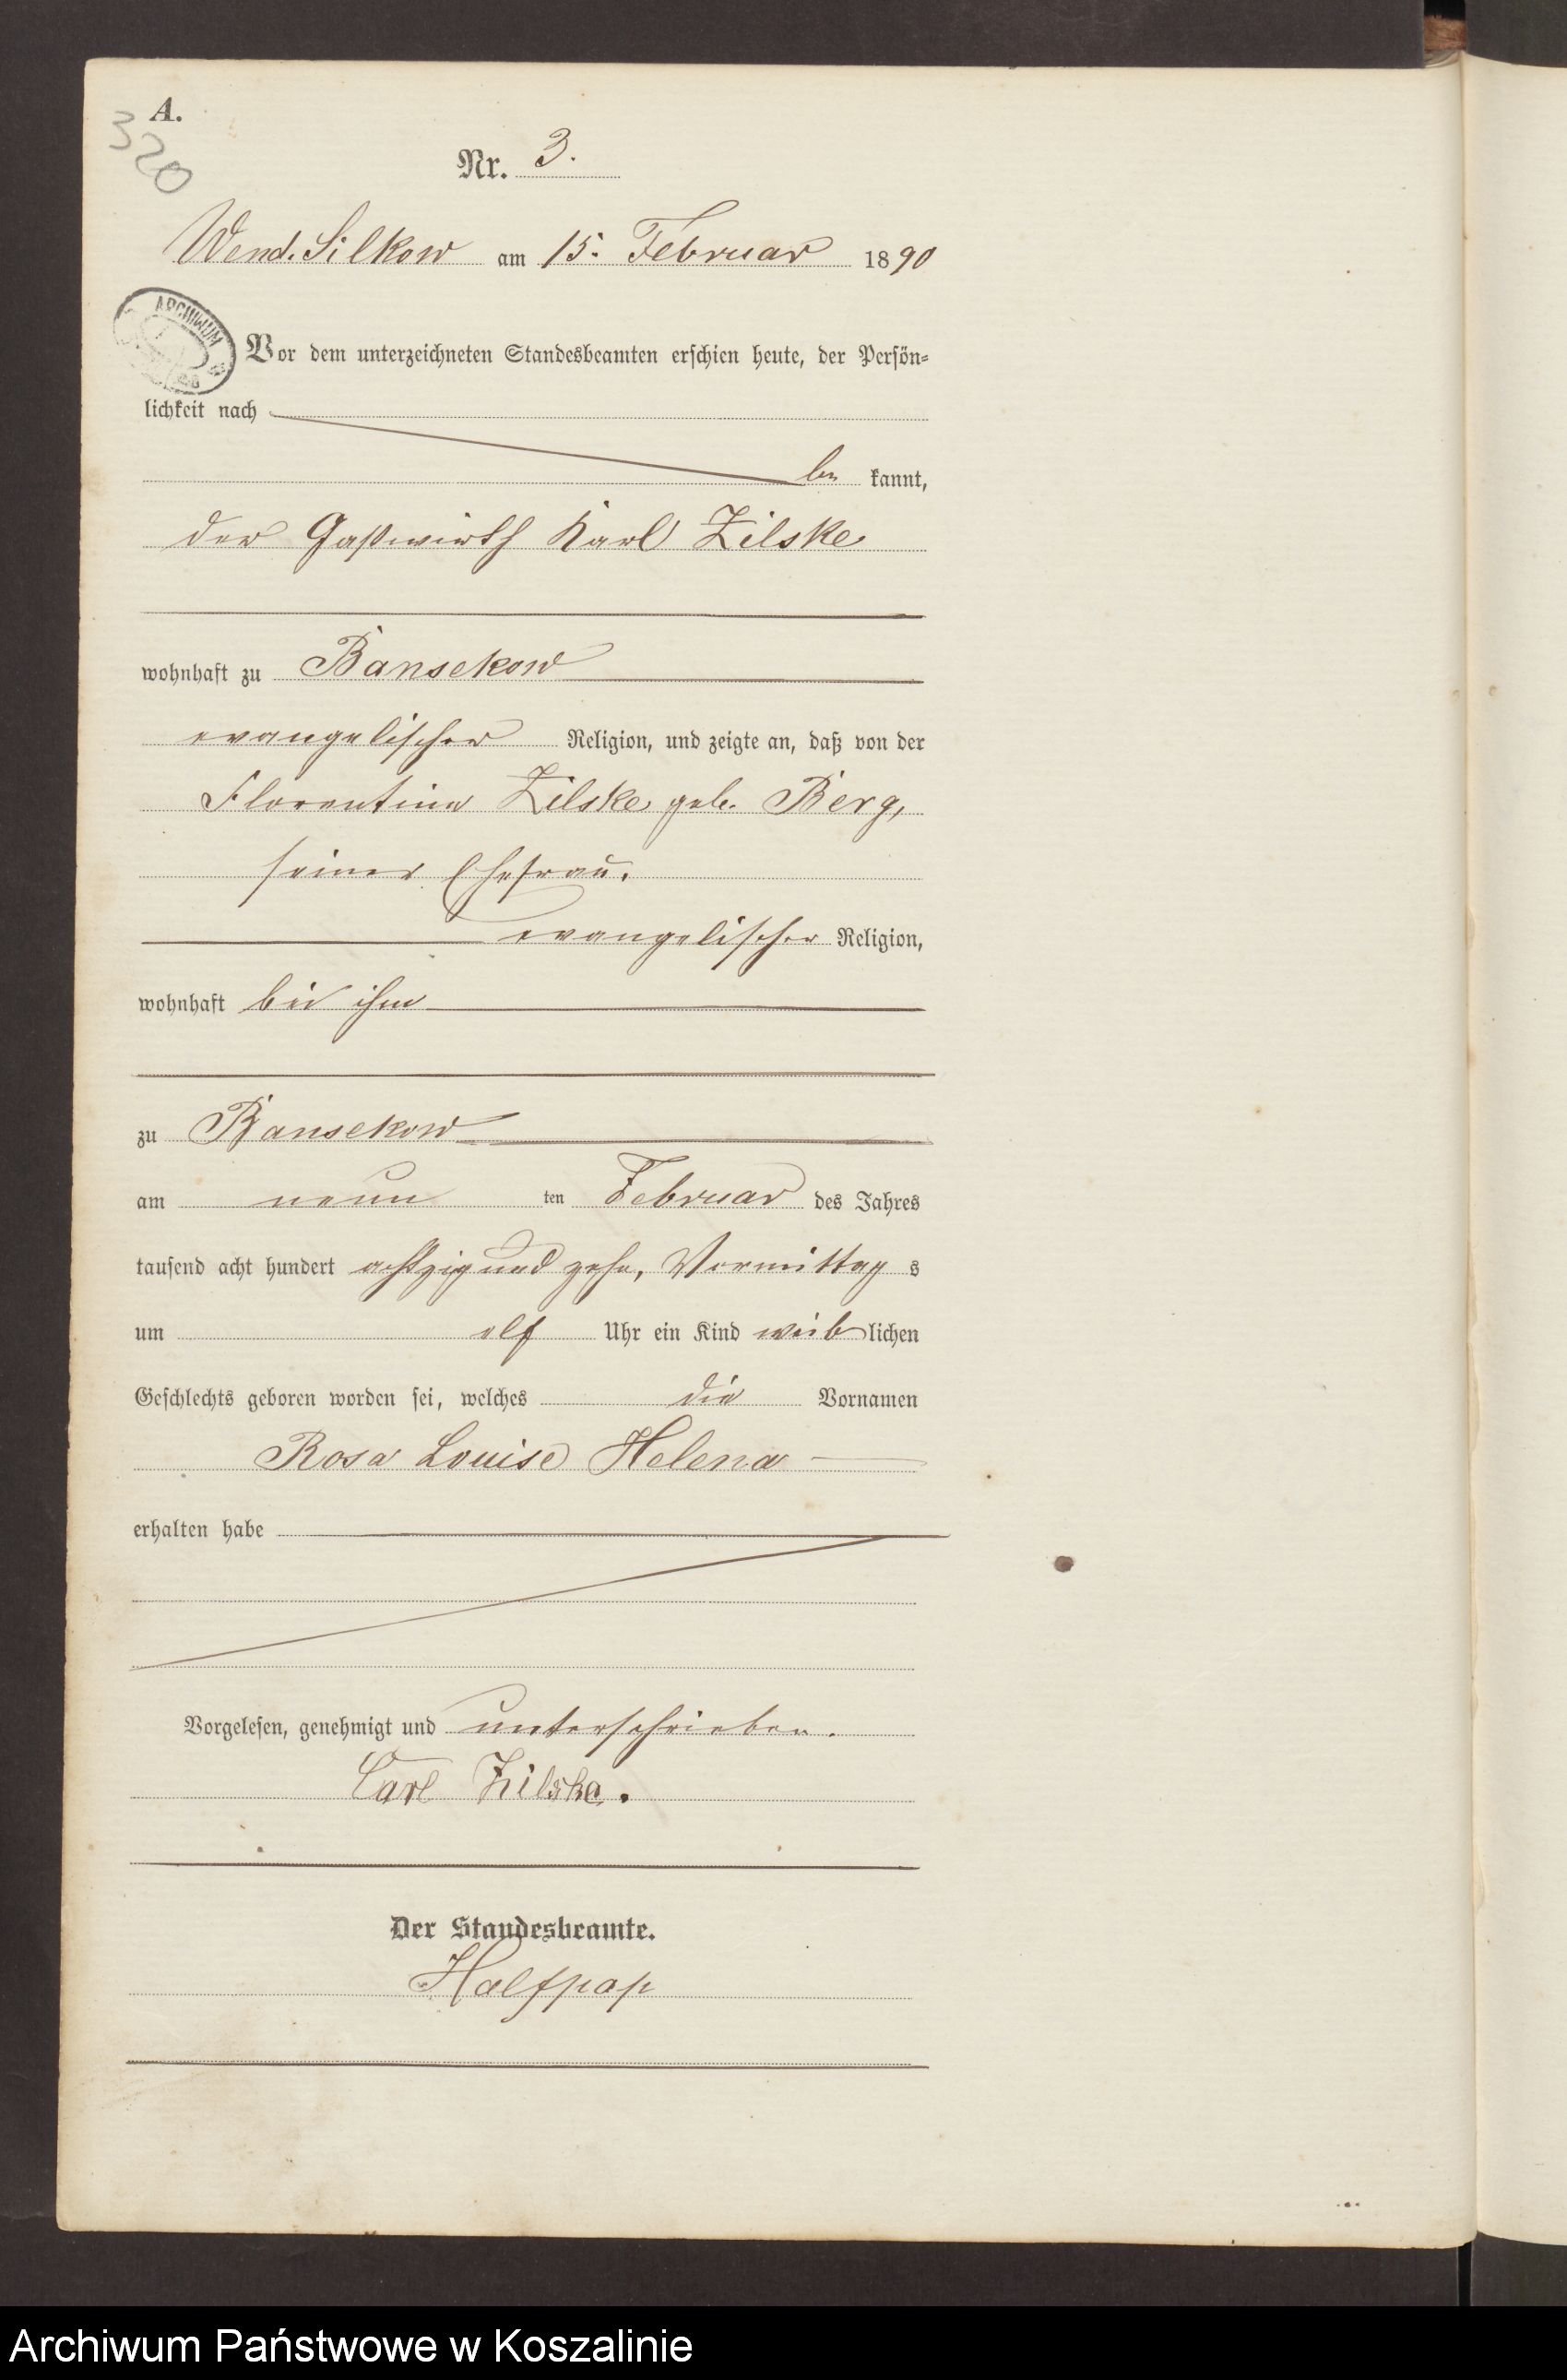 A.
320
Nr. 3.
Wend. Silkow am 15. Februar 1890
ARCHIWUM
Vor dem unterzeichneten Standesbeamten erschien heute, der Persön=
lichkeit nach
be kannt,
der Gastwirth Karl Zilske
wohnhaft zu Bansekow
evangelischer Religion, und zeigte an, daß von der
Florentine Zilske geb. Berg,
seiner Ehefrau.
evangelischer Religion,
wohnhaft bei ihm
zu Bansekow
am neun ten Februar des Jahres
tausend acht hundert achtzig und zehn, Vormittag s
um elf Uhr ein Kind weib lichen
Geschlechts geboren worden sei, welches die Vornamen
Rosa Louise Helena
erhalten habe
Vorgelesen, genehmigt und unterschrieben.
Carl Zilske.
Der Standesbeamte.
Halfpap
Archiwum Państwowe w Koszalinie